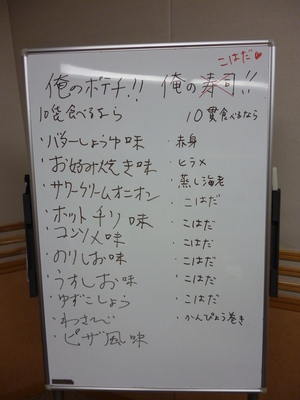 こはだ♥
俺のポテチ!! 俺の寿司!!
10袋食べるなら
・バターしょうゆ味
・お好み焼き味
・サワークリームオニオン
・ホットチリ味
・コンソメ味
・のりしお味
・うすしお味
・ゆずこしょう
・わさび
・ピザ風味
10貫食べるなら
・赤身
・ヒラメ
・蒸し海老
・こはだ
・こはだ
・こはだ
・こはだ
・こはだ
・こはだ
・かんぴょう巻き